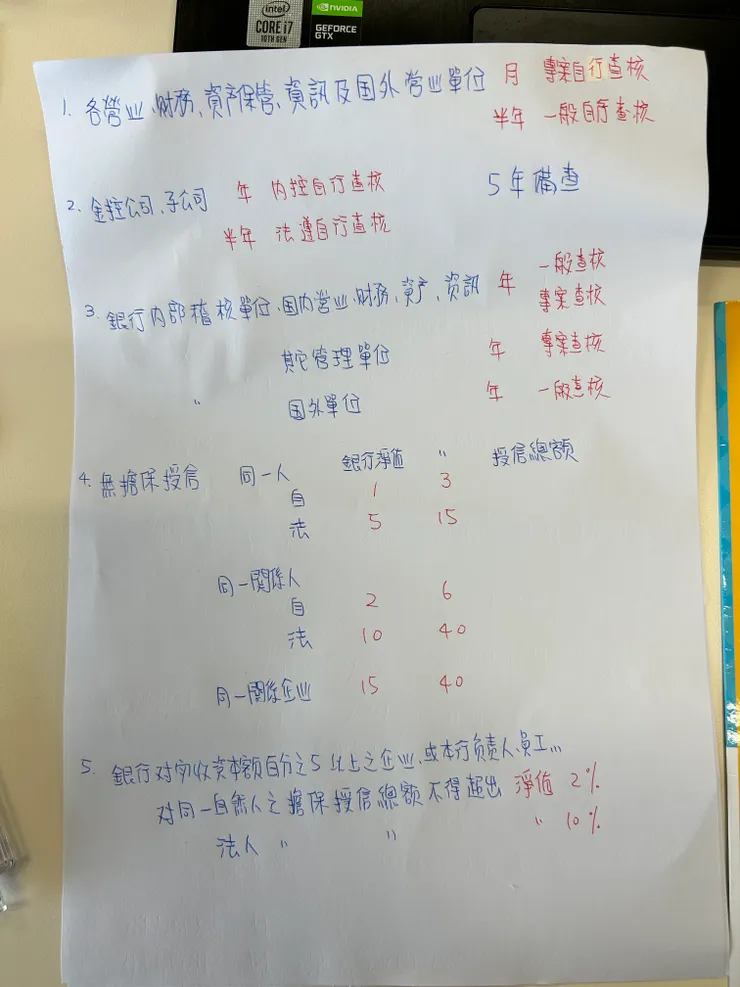 intel
CORE i7
10TH GEN
NVIDIA
GEFORCE
GTX
1. 各營业、财務、資產保管、資訊及国外营业單位 月 專案自行查核
半年 一般自行查核
2. 金控公司、子公司 年 内控自行查核 5年備查
半年 法遵自行查核
3. 銀行内部稽核單位、国内营业、财務、資产、資訊 年 一般查核
專案查核
其它管理單位 年 專案查核
" 国外單位 年 一般查核
4. 無擔保授信 同一人 銀行淨值 " 授信總額
自 1 3
法 5 15
同一關係人
自 2 6
法 10 40
同一關係企业 15 40
5. 銀行对实收資本額百分之5以上之企业,或本行负责人、員工...
对同一自然人之擔保授信總額不得超出 淨值 2%
法人 " " " 10%